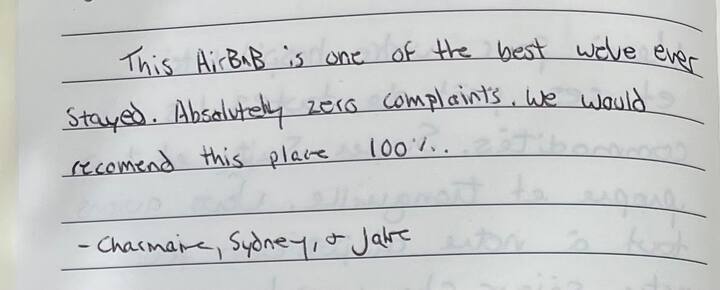 This AirBnB is one of the best we've ever
stayed. Absolutely zero complaints. We would
recomend this place 100%.
- Charmaine, Sydney, + Jake